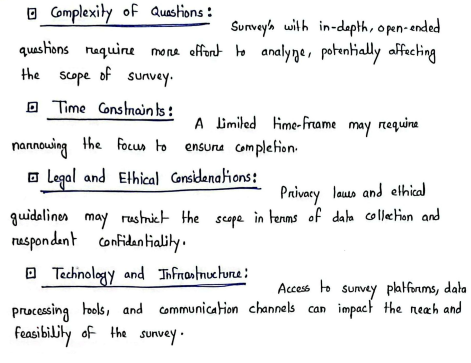 Complexity of Questions:
Survey's with in-depth, open-ended
questions require more effort to analyze, potentially affecting
the scope of survey.
Time Constraints:
A Limited time-frame may require
narrowing the focus to ensure completion.
Legal and Ethical Considerations:
Privacy laws and ethical
guidelines may restrict the scope in terms of data collection and
respondent confidentiality.
Technology and Infrastructure:
Access to survey platforms, data
processing tools, and communication channels can impact the reach and
feasibility of the survey.